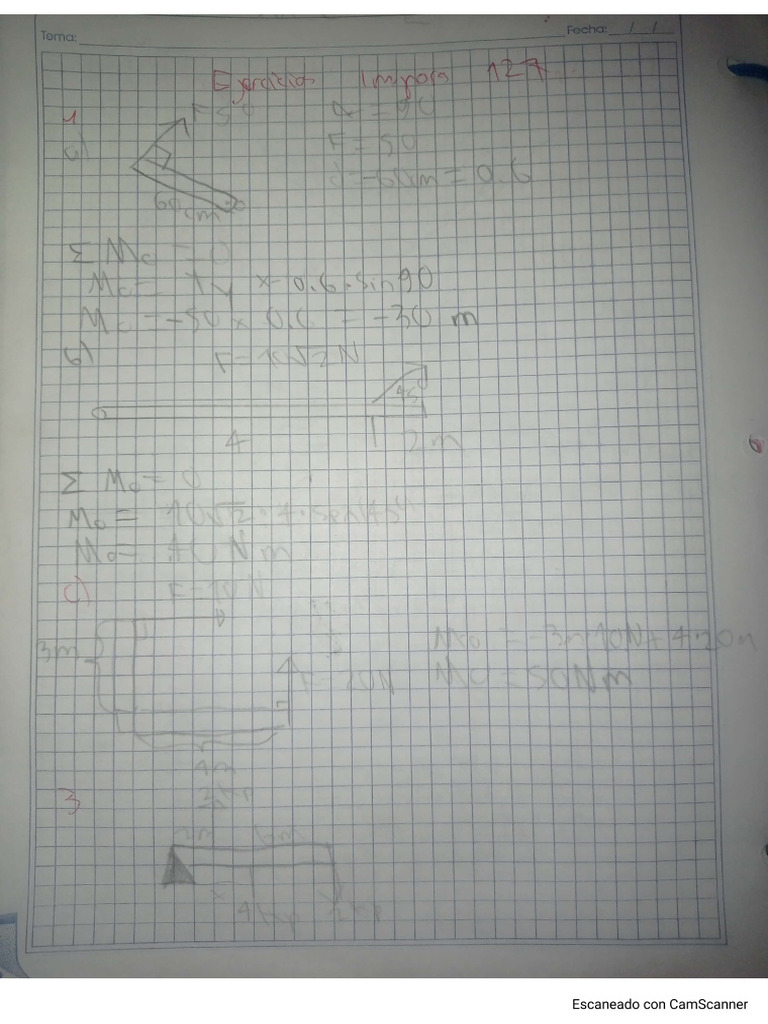 Tema:
Fecha: / /
Ejercicios Impares 127
1
a) F 50 α = 90
F = 50
d = 60cm = 0.6
60 cm
Σ Mo = 0
Mo = × 0.6 · Sin 90
Mo = -50 × 0.6 = -30 m
b) F = 10√2 N
45
4 2m
Σ Mo = 0
Mo = 10√2 · 4 · Sen 45°
Mo = 40 N m
c) F = 10 N
3m
Mo = -3m 10N + 4·20n
F = 20N Mo = 50Nm
4m
3
4kp 2kp
Escaneado con CamScanner